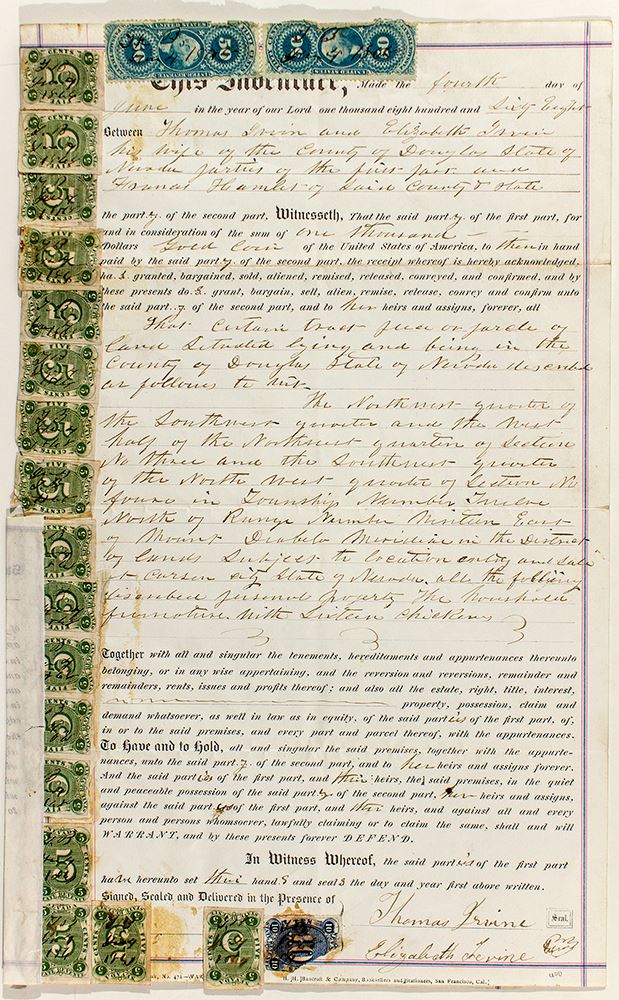 This Indenture, Made the fourth day of
June in the year of our Lord one thousand eight hundred and Sixty Eight
Between Thomas Irvin and Elizabeth Irvin
his wife of the County of Douglas State of
Nevada parties of the first part and
Francis Hamlet of Said County & State
the party. of the second part, Witnesseth, That the said party. of the first part, for
and in consideration of the sum of One thousand
Dollars Gold Coin of the United States of America, to them in hand
paid by the said party. of the second part, the receipt whereof is hereby acknowledged,
ha.s. granted, bargained, sold, aliened, remised, released, conveyed, and confirmed, and by
these presents do.s. grant, bargain, sell, alien, remise, release, convey and confirm unto
the said part..y of the second part, and to her heirs and assigns, forever, all
That certain tract or parcle of
land Situated lying and being in the
County of Douglas State of Nevada described
as follows to wit-
The Northwest quarter of
the Southwest quarter and the West
half of the Northwest quarter of Section
No three and the Southwest quarter
of the North west quarter of Section No
foure in Township Number Twelve
North of Range Number Ninteen East
of Mount Diabelo Meridian in the District
of lands Subject to location entry and Sale
at Carson city State of Nevada. all the following
discribed personal property The household
furnature With Sixteen Chickens
Together with all and singular the tenements, hereditaments and appurtenances thereunto
belonging, or in any wise appertaining, and the reversion and reversions, remainder and
remainders, rents, issues and profits thereof; and also all the estate, right, title, interest,
property, possession, claim and
demand whatsoever, as well in law as in equity, of the said parties of the first part, of,
in or to the said premises, and every part and parcel thereof, with the appurtenances.
To Have and to Hold, all and singular the said premises, together with the appurte-
nances, unto the said part.y. of the second part, and to her heirs and assigns forever.
And the said parties of the first part, and their heirs, the said premises, in the quiet
and peaceable possession of the said party of the second part, her heirs and assigns,
against the said part of the first part, and their heirs, and against all and every
person and persons whomsoever, lawfully claiming or to claim the same, shall and will
WARRANT, and by these presents forever DEFEND.
In Witness Whereof, the said parties of the first part
have hereunto set their hand.s and seals the day and year first above written.
Signed, Sealed and Delivered in the Presence of
Thomas Irvine Seal.
Elizabeth Irvine
H. H. Bancroft & Company, Booksellers and Stationers, San Francisco, Cal.